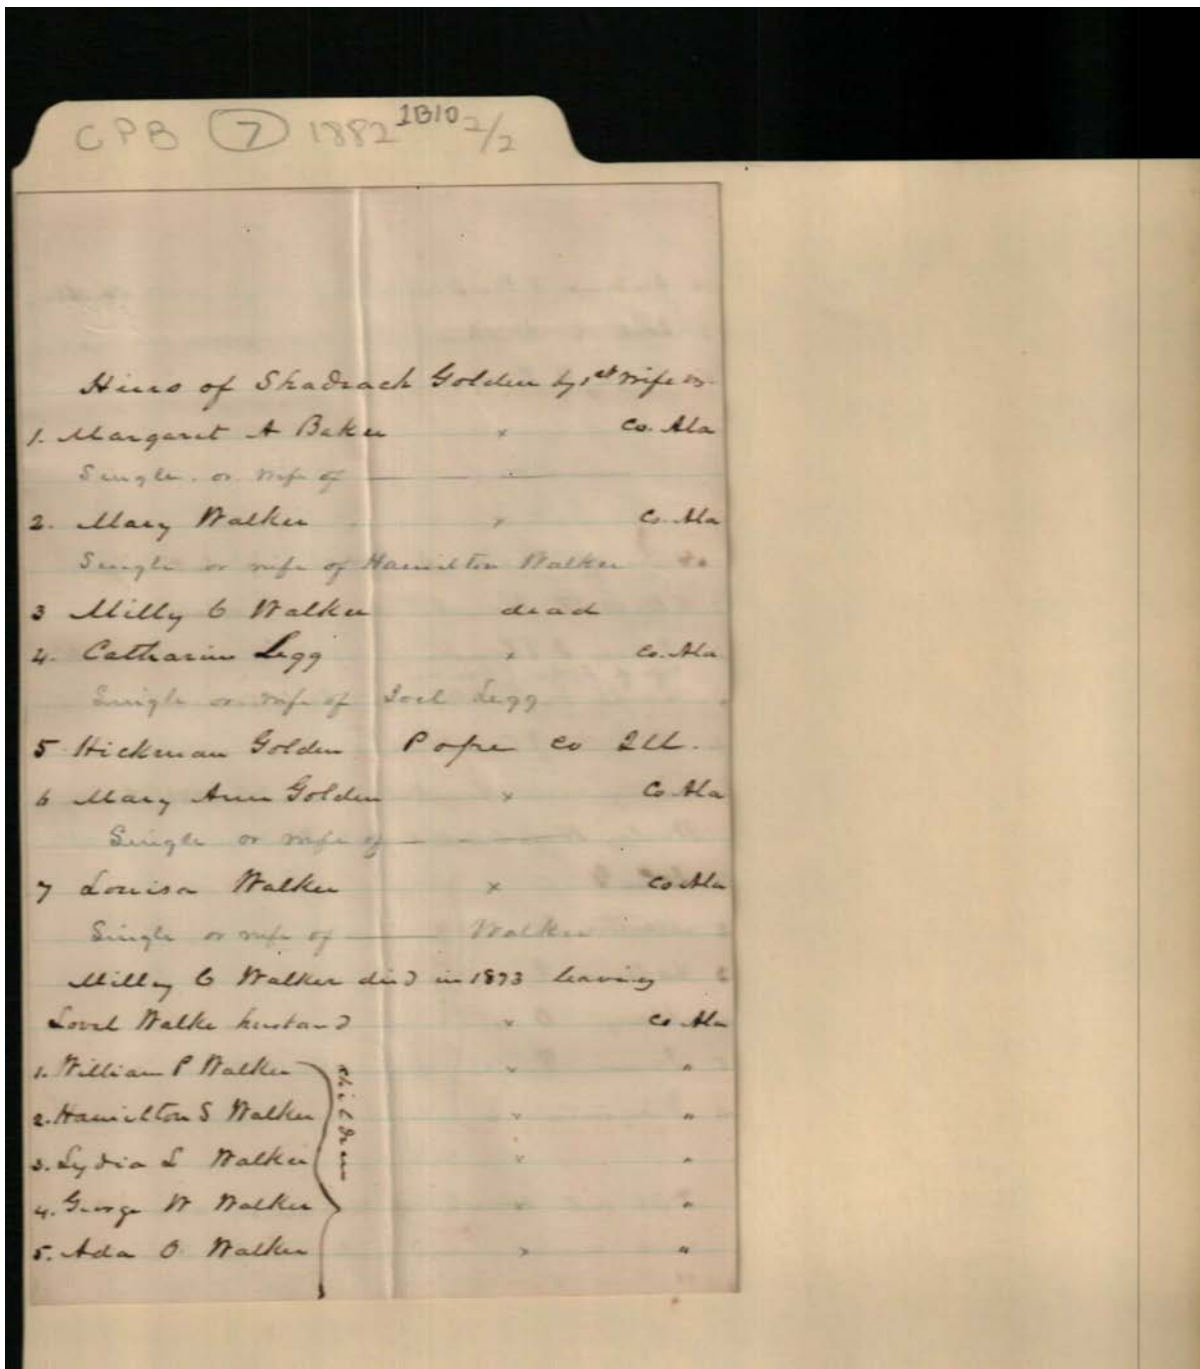 CPB 7 1882 1B10 2/2
Heirs of Shadrach Golden by 1st wife
1. Margaret A Baker x Co. Ala
Single or wife of
2. Mary Walker x Co. Ala
Single or wife of Hamilton Walker
3 Milly C Walker dead
4. Catharine Legg x Co. Ala
Single or wife of Joel Legg
5 Hickman Golden Pope Co Ill.
6 Mary Ann Golden x Co Ala
Single or wife of
7 Louisa Walker x Co Ala
Single or wife of Walker
Milley C Walker died in 1873 leaving
Lovel Walke husband x Co Ala
1. William P Walker x "
2. Hamilton S Walker x "
3. Lydia L Walker x "
4. George W Walker x "
5. Ada O Walker x "
children